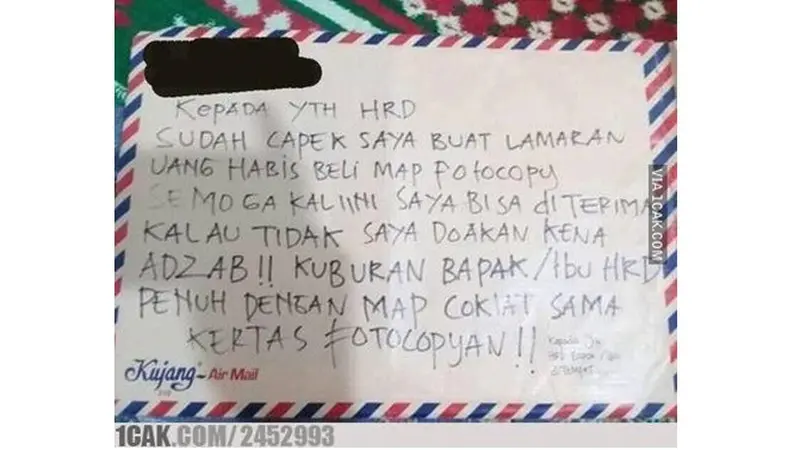 KEPADA YTH HRD
SUDAH CAPEK SAYA BUAT LAMARAN
UANG HABIS BELI MAP FOTOCOPY
SEMOGA KALI INI SAYA BISA DITERIMA
KALAU TIDAK SAYA DOAKAN KENA
ADZAB!! KUBURAN BAPAK/IBU HRD
PENUH DENGAN MAP COKLAT SAMA
KERTAS FOTOCOPYAN!!
Kepada Yth
Kujang - Air Mail
VIA 1CAK.COM
1CAK.COM/2452993